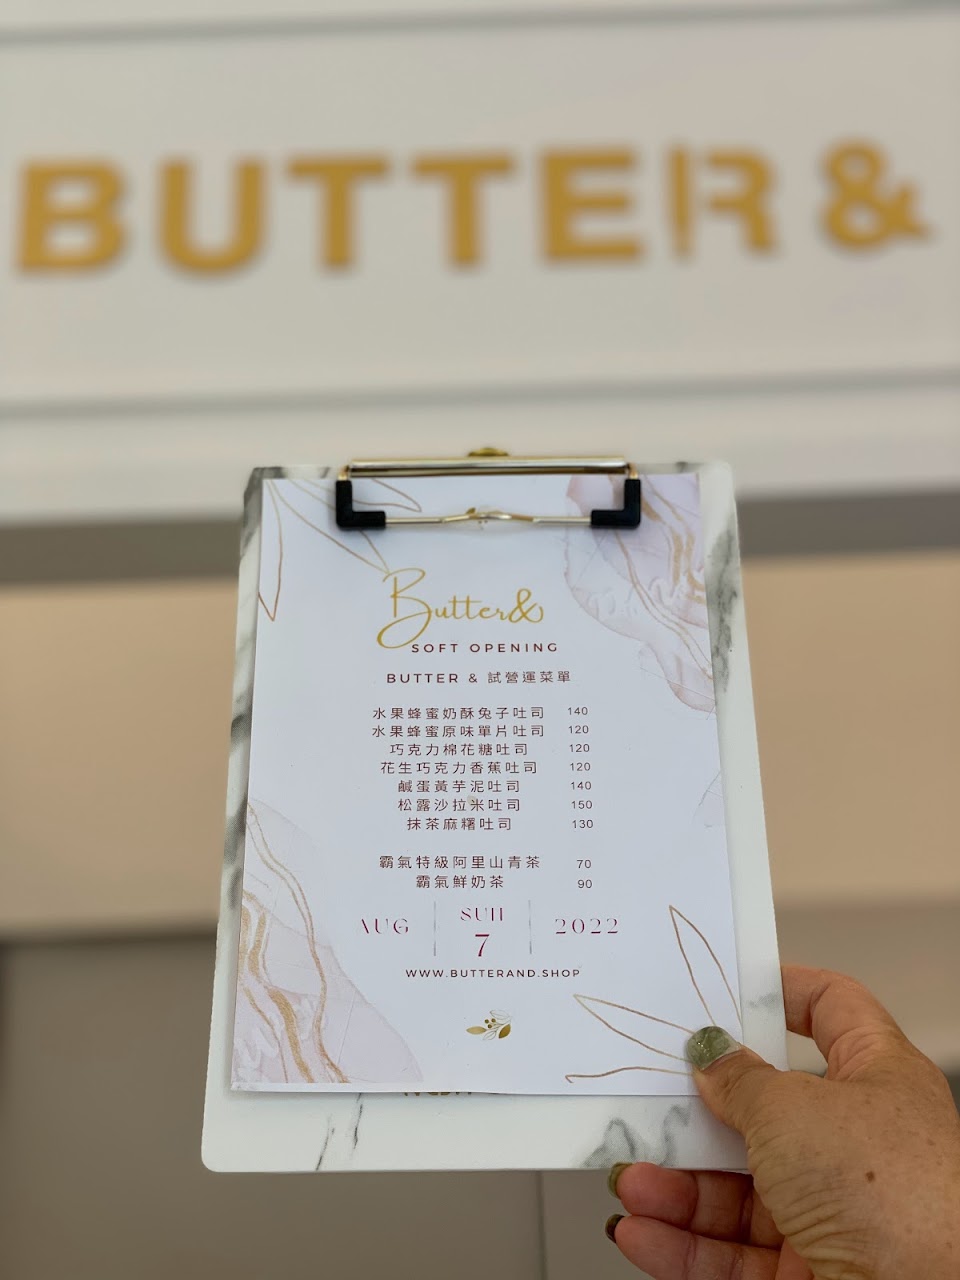 BUTTER &
Butter&
SOFT OPENING
BUTTER & 試營運菜單
水果蜂蜜奶酥兔子吐司 140
水果蜂蜜原味單片吐司 120
巧克力棉花糖吐司 120
花生巧克力香蕉吐司 120
鹹蛋黃芋泥吐司 140
松露沙拉米吐司 150
抹茶麻糬吐司 130
霸氣特級阿里山青茶 70
霸氣鮮奶茶 90
AUG SUN 7 2022
WWW.BUTTERAND.SHOP